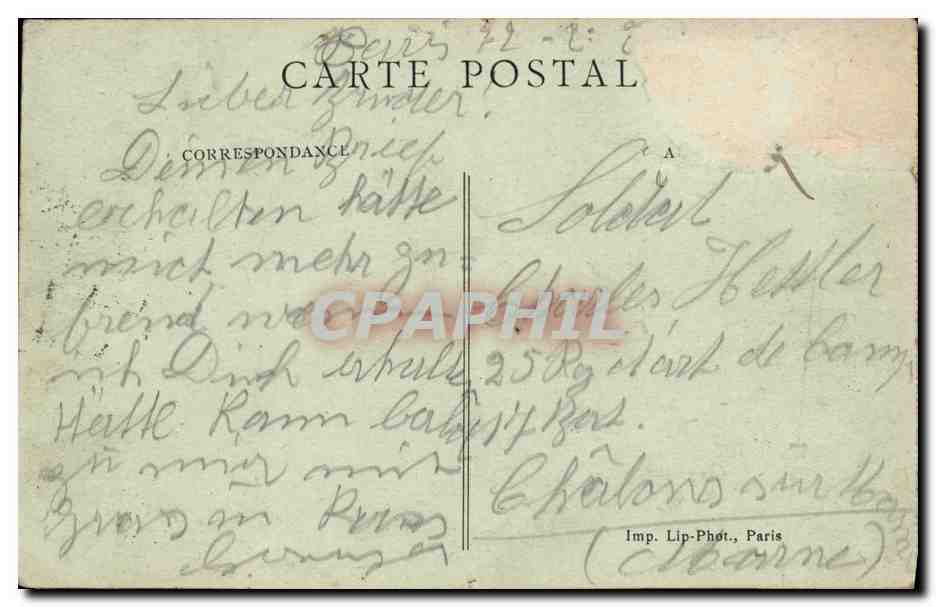 Paris 22 - 2
CARTE POSTAL
Lieber Bruder!
CORRESPONDANCE
Deinen Brief
erhalten hätte
mich mehr
freud wenn
ich Dich erhalte
Hätte Kann
zu mir mit
Gruss
A
Soldat
Charles Hessler
25 Rg d'art de Camp
17 Bat.
Châlons sur Marne
(Marne)
Imp. Lip-Phot., Paris
CPAPHIL